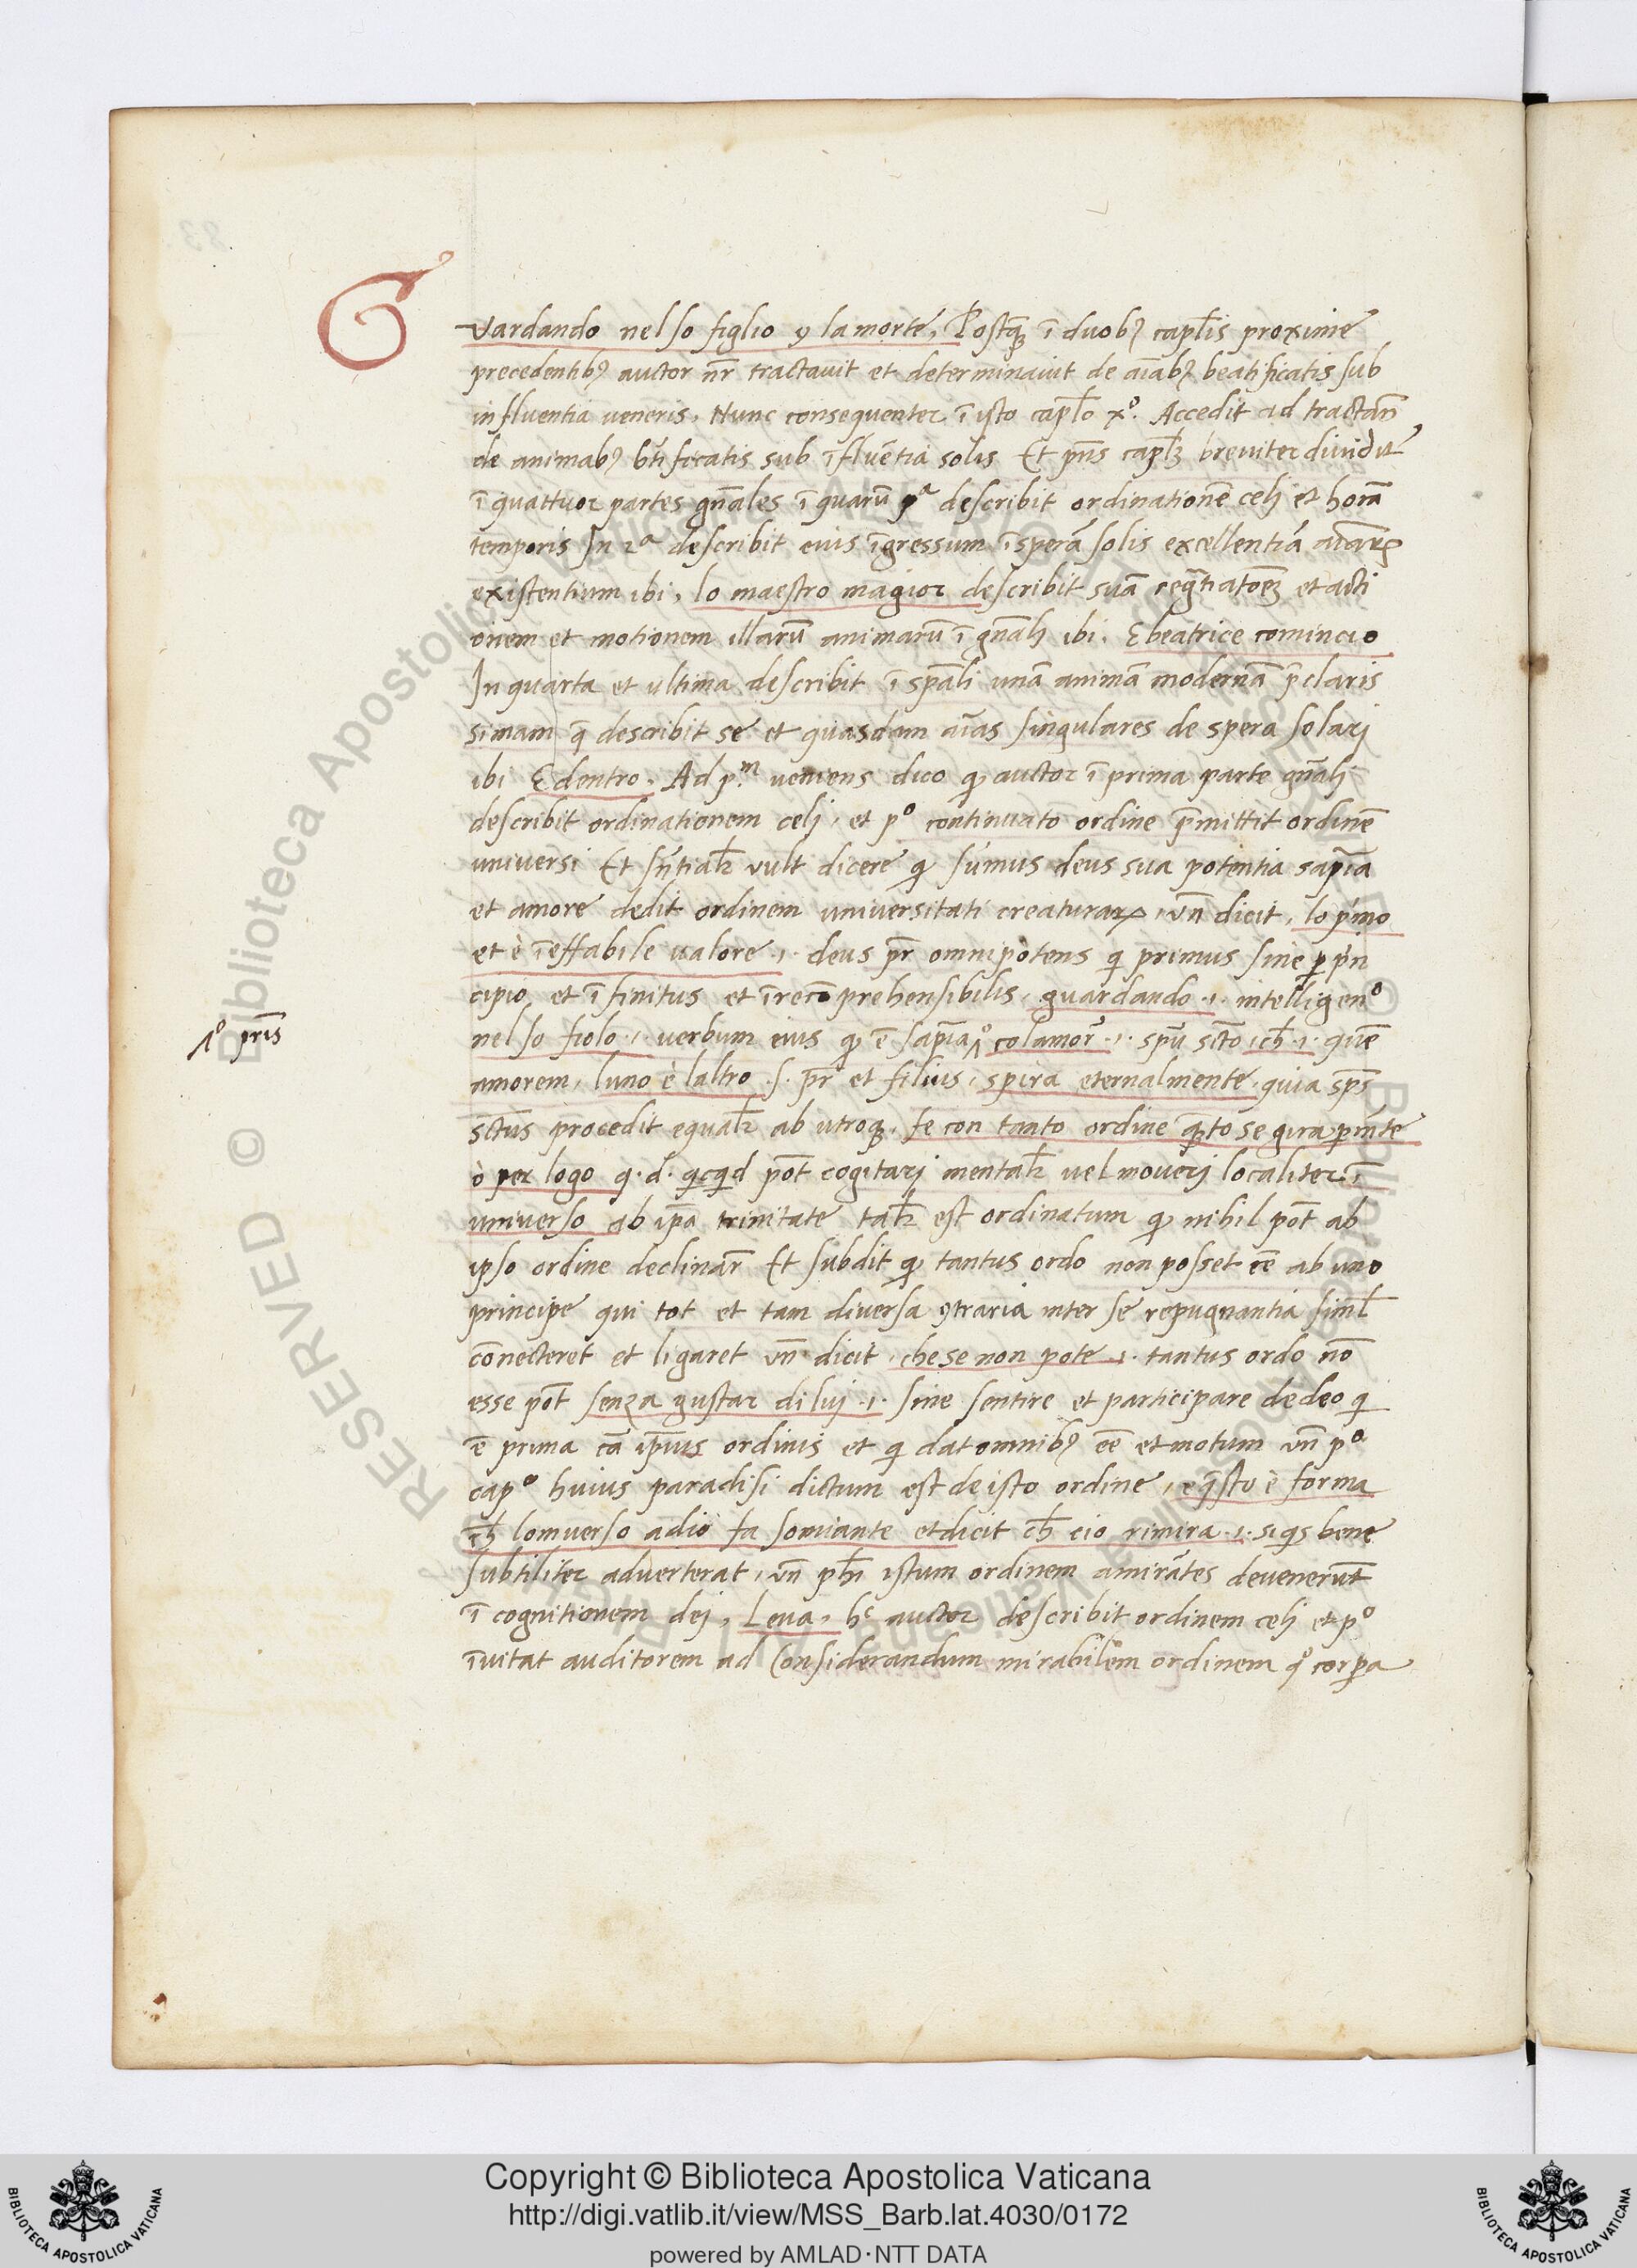 Guardando nel so figlio ꝯ la morte, Postꝗ̄ ī duobꝰ capl̄is proxime
precedentibꝰ auctor nr̄ tractauit et determinauit de aīabꝰ beatificatis sub
influentia ueneris, Nunc consequenter ī isto capl̄o xº. Accedit ad tractan̄
de animabꝰ bt̄ificatis sub īfluētia solis Et pn̄s capl̄ꝫ breuiter diuidit᷑
ī quattuor partes gn̄ales ī quarū pª describit ordinationē celj et horā
temporis In 2ª describit eius īgressum īsperā solis excellentiā aīarꝝ
existentium ibi, lo maestro magior describit suā regr̄atiatōeꝫ et acti
onem et motionem illarū animarū ī gn̄ali ibi. E beatrice comincio
In quarta et ultima describit ī spāli unā animā modernā p̄claris
simam q̄ describit se et quasdam aīas singulares de spera solari
ibi E dentro. Ad p.ᵐ ueniens dico ꝙ auctor ī prima parte gn̄ali
describit ordinationem celj, et pº continuato ordine p̄mittit ordinē
universi Et sn̄tialr̄ vult dicere ꝙ sūmus deus sua potentia sapīa
et amore dedit ordinem universitati creaturarꝝ, vn̄ dicit, lo pͥmo
et è īeffabile ualore .i. deus pr̄ omnipotens q̇ primus sine ꝑpͥn
cipio et īfinitus et īrecōprehensibilis, guardando .i. intelligenº
nel so fiolo .i. verbum eius ꝙ ē sapīa ⸝º col amor̄ .i. spū sctō, ch̄ .i. quē
1º pr̄is
amorem, luno è laltro .s. pr̄ et filius, spira eternalmente, quia sps̄
sctūs procedit equalr̄ ab utroqꝫ, fe con tanto ordine q̄to se gira ꝑ mēte
ò per logo q. d. qͥcqͥd pōt cogitari mentalr̄ uel moueri localiter ī
universo ab ip̄a trinitate talr̄ est ordinatum ꝙ nihil pōt ab
ipso ordine declinar̄ Et subdit ꝙ tantus ordo non posset eē ab uno
principe qui tot et tam diuersa ꝯtraria inter se repugnantia siml̄
cōnecteret et ligaret vn̄ dicit, che se non pote .i. tantus ordo nō
esse pōt senza gustar di luj .i. sine sentire et participare de deo q̇
ē prima cā ip̄ius ordinis et q̇ dat omnibꝰ eē et motum vn̄ pº
capº huius paradisi dictum est de isto ordine, e q̄sto è forma
ch̄ lomuerso a dio fa somiante et dicit ch̄ cio rimira .i. si qͥs bene
subtiliter aduerterat, vn̄ ph̄i istum ordinem amirātes deuenerūt
ī cognitionem dej, Leua, hᶜ auctor describit ordinem celj et pº
īuitat auditorem ad Considerandum mirabilem ordinem qº corpa
83
Copyright © Biblioteca Apostolica Vaticana
http://digi.vatlib.it/view/MSS_Barb.lat.4030/0172
powered by AMLAD·NTT DATA
BIBLIOTECA APOSTOLICA VATICANA
BIBLIOTECA APOSTOLICA VATICANA